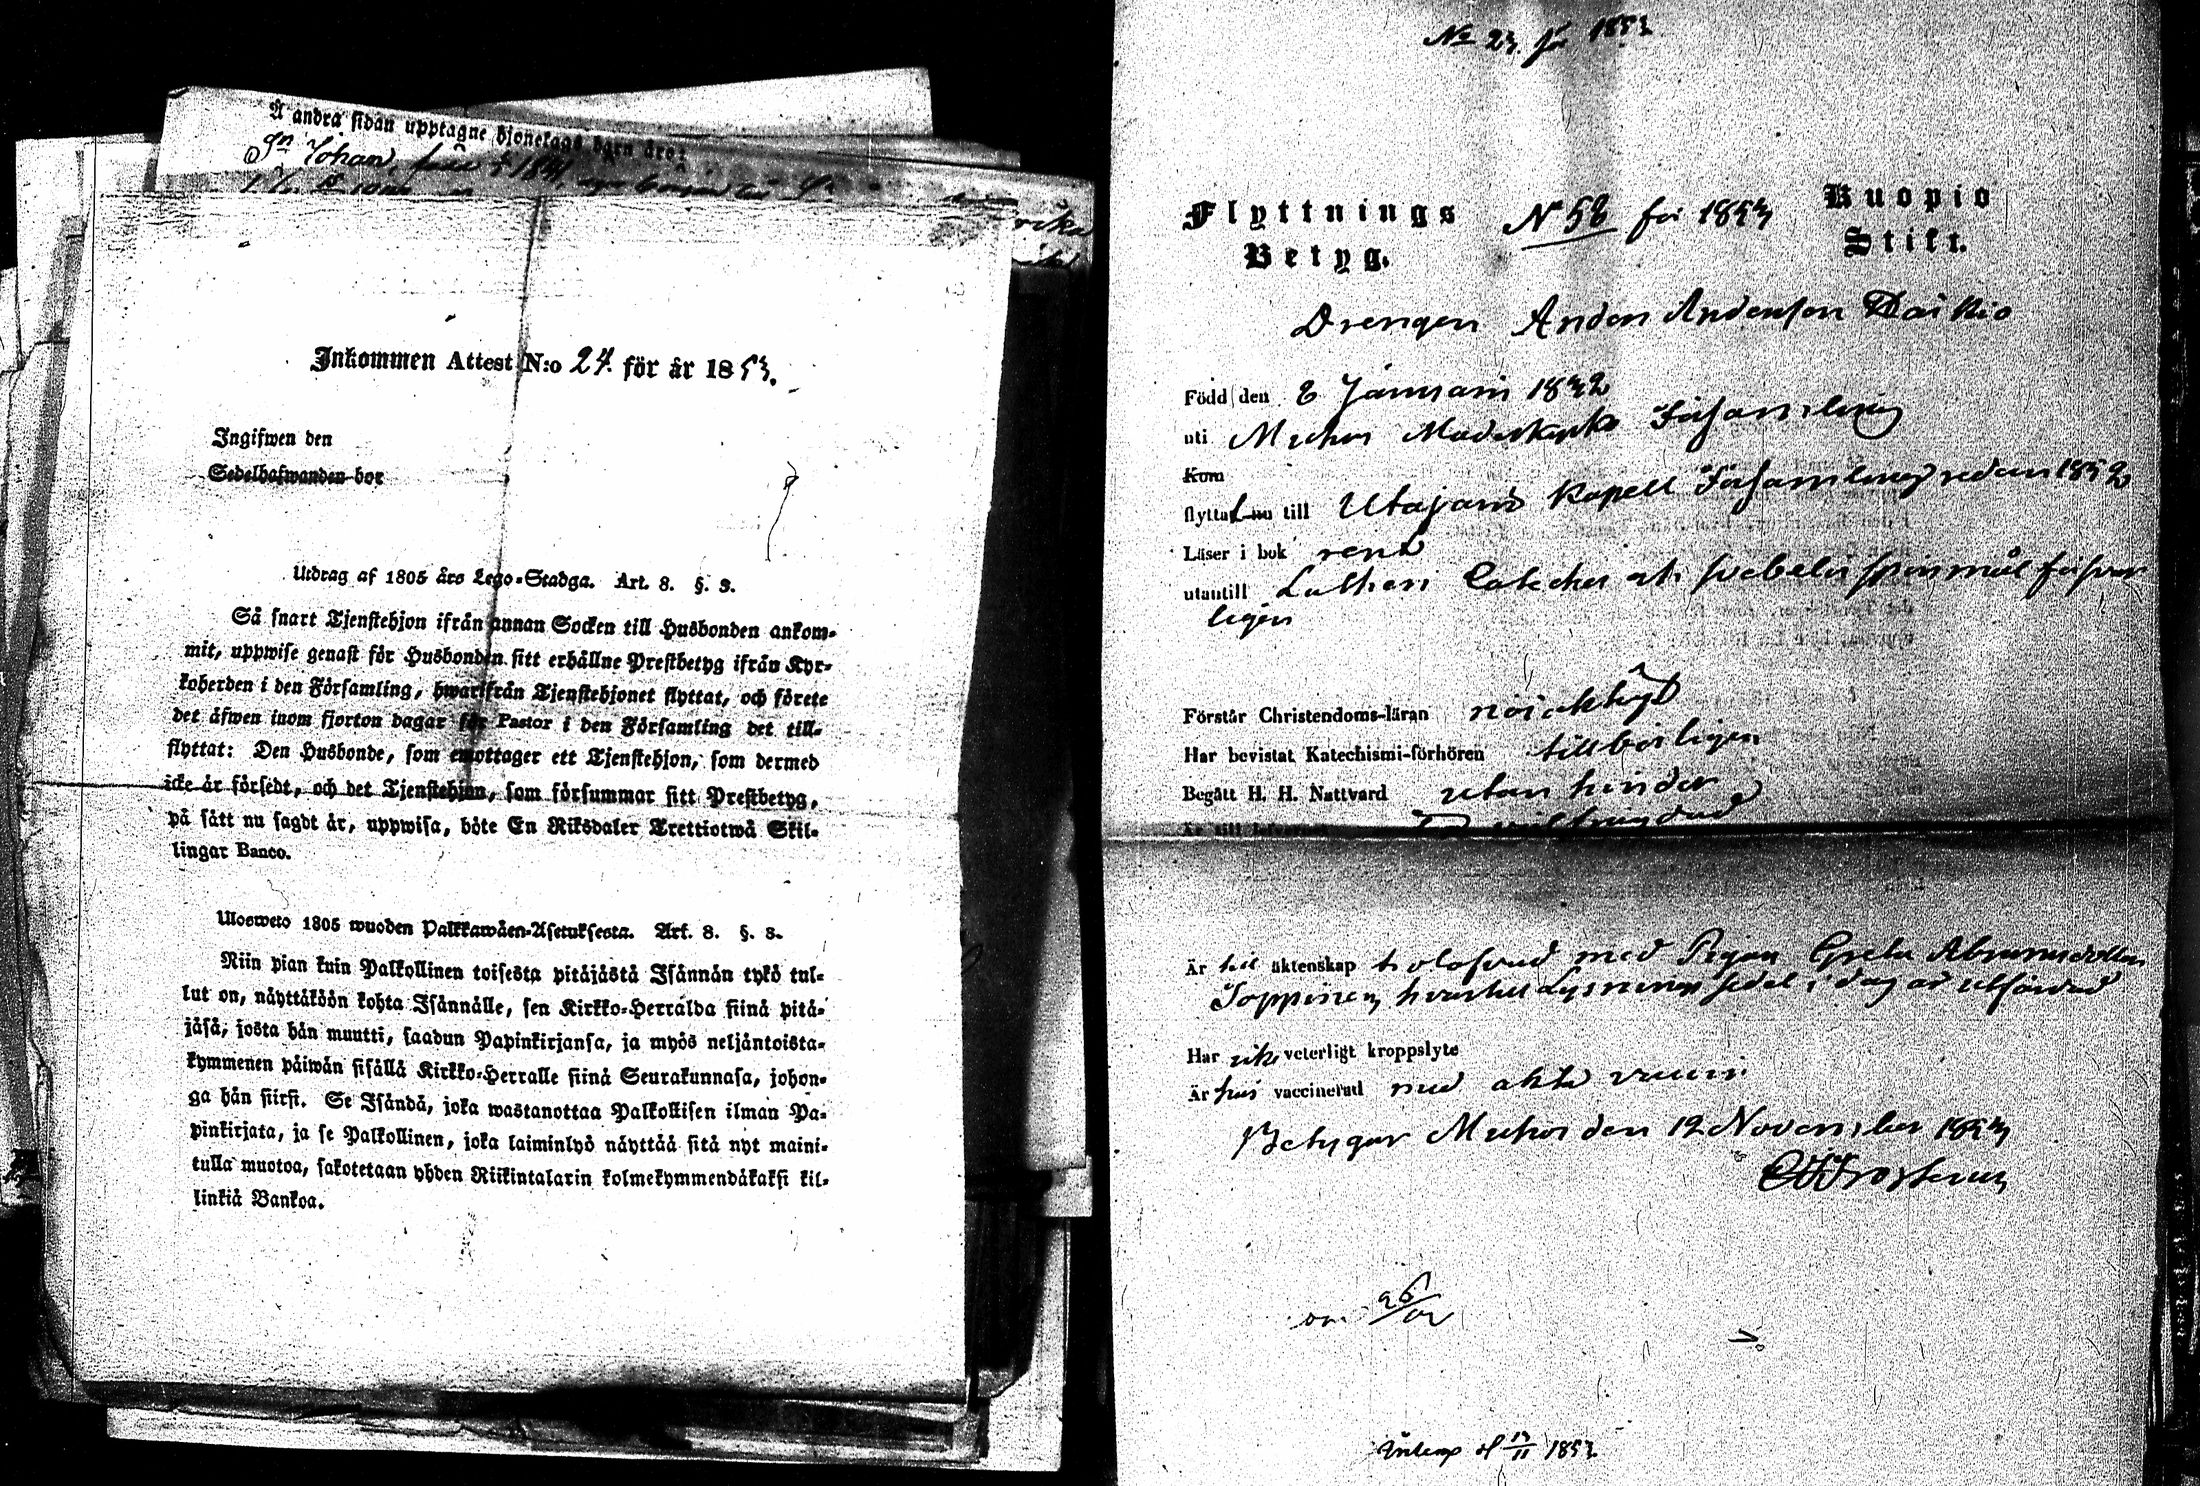 Å andra sidan upptagne hjonelags barn äro:
Sn Johan,
Inkommen Attest N:o 24 för år 1853.
Ingifwen den
Sedelhafwanden bor
Utdrag af 1805 års Lego-Stadga. Art. 8. §. 3.
Så snart Tjenstehjon ifrån annan Socken till Husbonden ankom-
mit, uppwise genast för Husbonden sitt erhållne Prestbetyg ifrån Kyr-
koherden i den Församling, hwarifrån Tjenstehjonet flyttat, och förete
det äfwen inom fjorton dagar för Pastor i den Församling det till-
flyttat: Den Husbonde, som emottager ett Tjenstehjon, som dermed
icke är försedt, och det Tjenstehjon, som försummar sitt Prestbetyg,
på sätt nu sagdt är, uppwisa, böte En Riksdaler Trettiotwå Skil-
lingar Banco.
Ulosweto 1805 wuoden Palkkawäen-Asetuksesta. Art. 8. §. 3.
Niin pian kuin Palkollinen toisesta pitäjästä Isännän tykö tul-
lut on, näyttäköön kohta Isännälle, sen Kirkko-Herralda siinä pitä-
jäsä, josta hän muutti, saadun Papinkirjansa, ja myös neljäntoista-
kymmenen päiwän sisällä Kirkko-Herralle siinä Seurakunnasa, johon-
ga hän siirsi. Se Isändä, joka wastanottaa Palkollisen ilman Pa-
pinkirjata, ja se Palkollinen, joka laiminlyö näyttää sitä nyt maini-
tulla muotoa, sakotetaan yhden Riikintalarin kolmekymmendäkaksi kil-
linkiä Bankoa.
No 23 för 1853
Flyttnings No 58 för 1853 Kuopio
Betyg. Stift.
Drengen Anders Andersson
Född den 8 Januari 1832
uti Muhos Moderkyrko Församling
Kom
flyttat nu till Utajärvi Kapell Församling redan 1852
Läser i bok rent
utantill Lutheri Cateches och Svebelii spörsmål försvar
ligen
Förstår Christendoms-läran nöjaktigt
Har bevistat Katechismi-förhören tillbörligen
Begått H. H. Nattvard utan hinder
Är till lefvernet
Är till äktenskap trolofvad med Pigan Greta Abramsdotter
Toppinen, hvartill Lysnings sedel i dag är utfärdad
Har icke veterligt kroppslyte
Är haft vaccinerad med äkta vaccin
Betygar Muhos den 12 November 1853